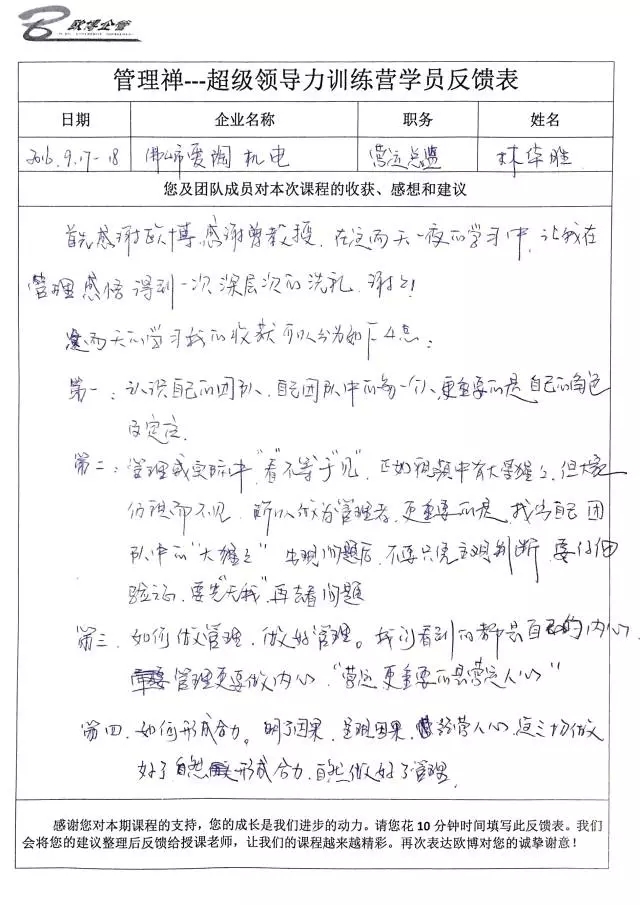 欧博企管
管理禅---超级领导力训练营学员反馈表
日期 企业名称 职务 姓名
2016.9.17-18 佛山市爱陶机电 营运总监 林华胜
您及团队成员对本次课程的收获、感想和建议
首先感谢欧博,感谢曾教授,在这两天一夜的学习中,让我在
管理感悟得到一次深层次的洗礼,谢谢!
两天的学习我的收获可以分为如下4点:
第一:认识自己的团队、自己团队中的每一个人、更重要的是自己的角色
及定位.
第二:管理或实际中"看"不等于"见",正如视频中有大猩猩,但大家
仿视而不见,所以做为管理者,更重要的是,找出自己团
队中的"大猩猩" 出现问题后,不要只凭主观判断,要仔细
验证,要先"无我",再去看问题
第三.如何做管理,做好管理。我们看到的都是自己的内心,
管理更要做内心,"营运更重要的是营运人心"
第四.如何形成合力。明了因果,呈现因果,经营人心,这三切做
好了自然形成合力,自然做好了管理.
感谢您对本期课程的支持,您的成长是我们进步的动力。请您花10分钟时间填写此反馈表。我们
会将您的建议整理后反馈给授课老师,让我们的课程越来越精彩。再次表达欧博对您的诚挚谢意!